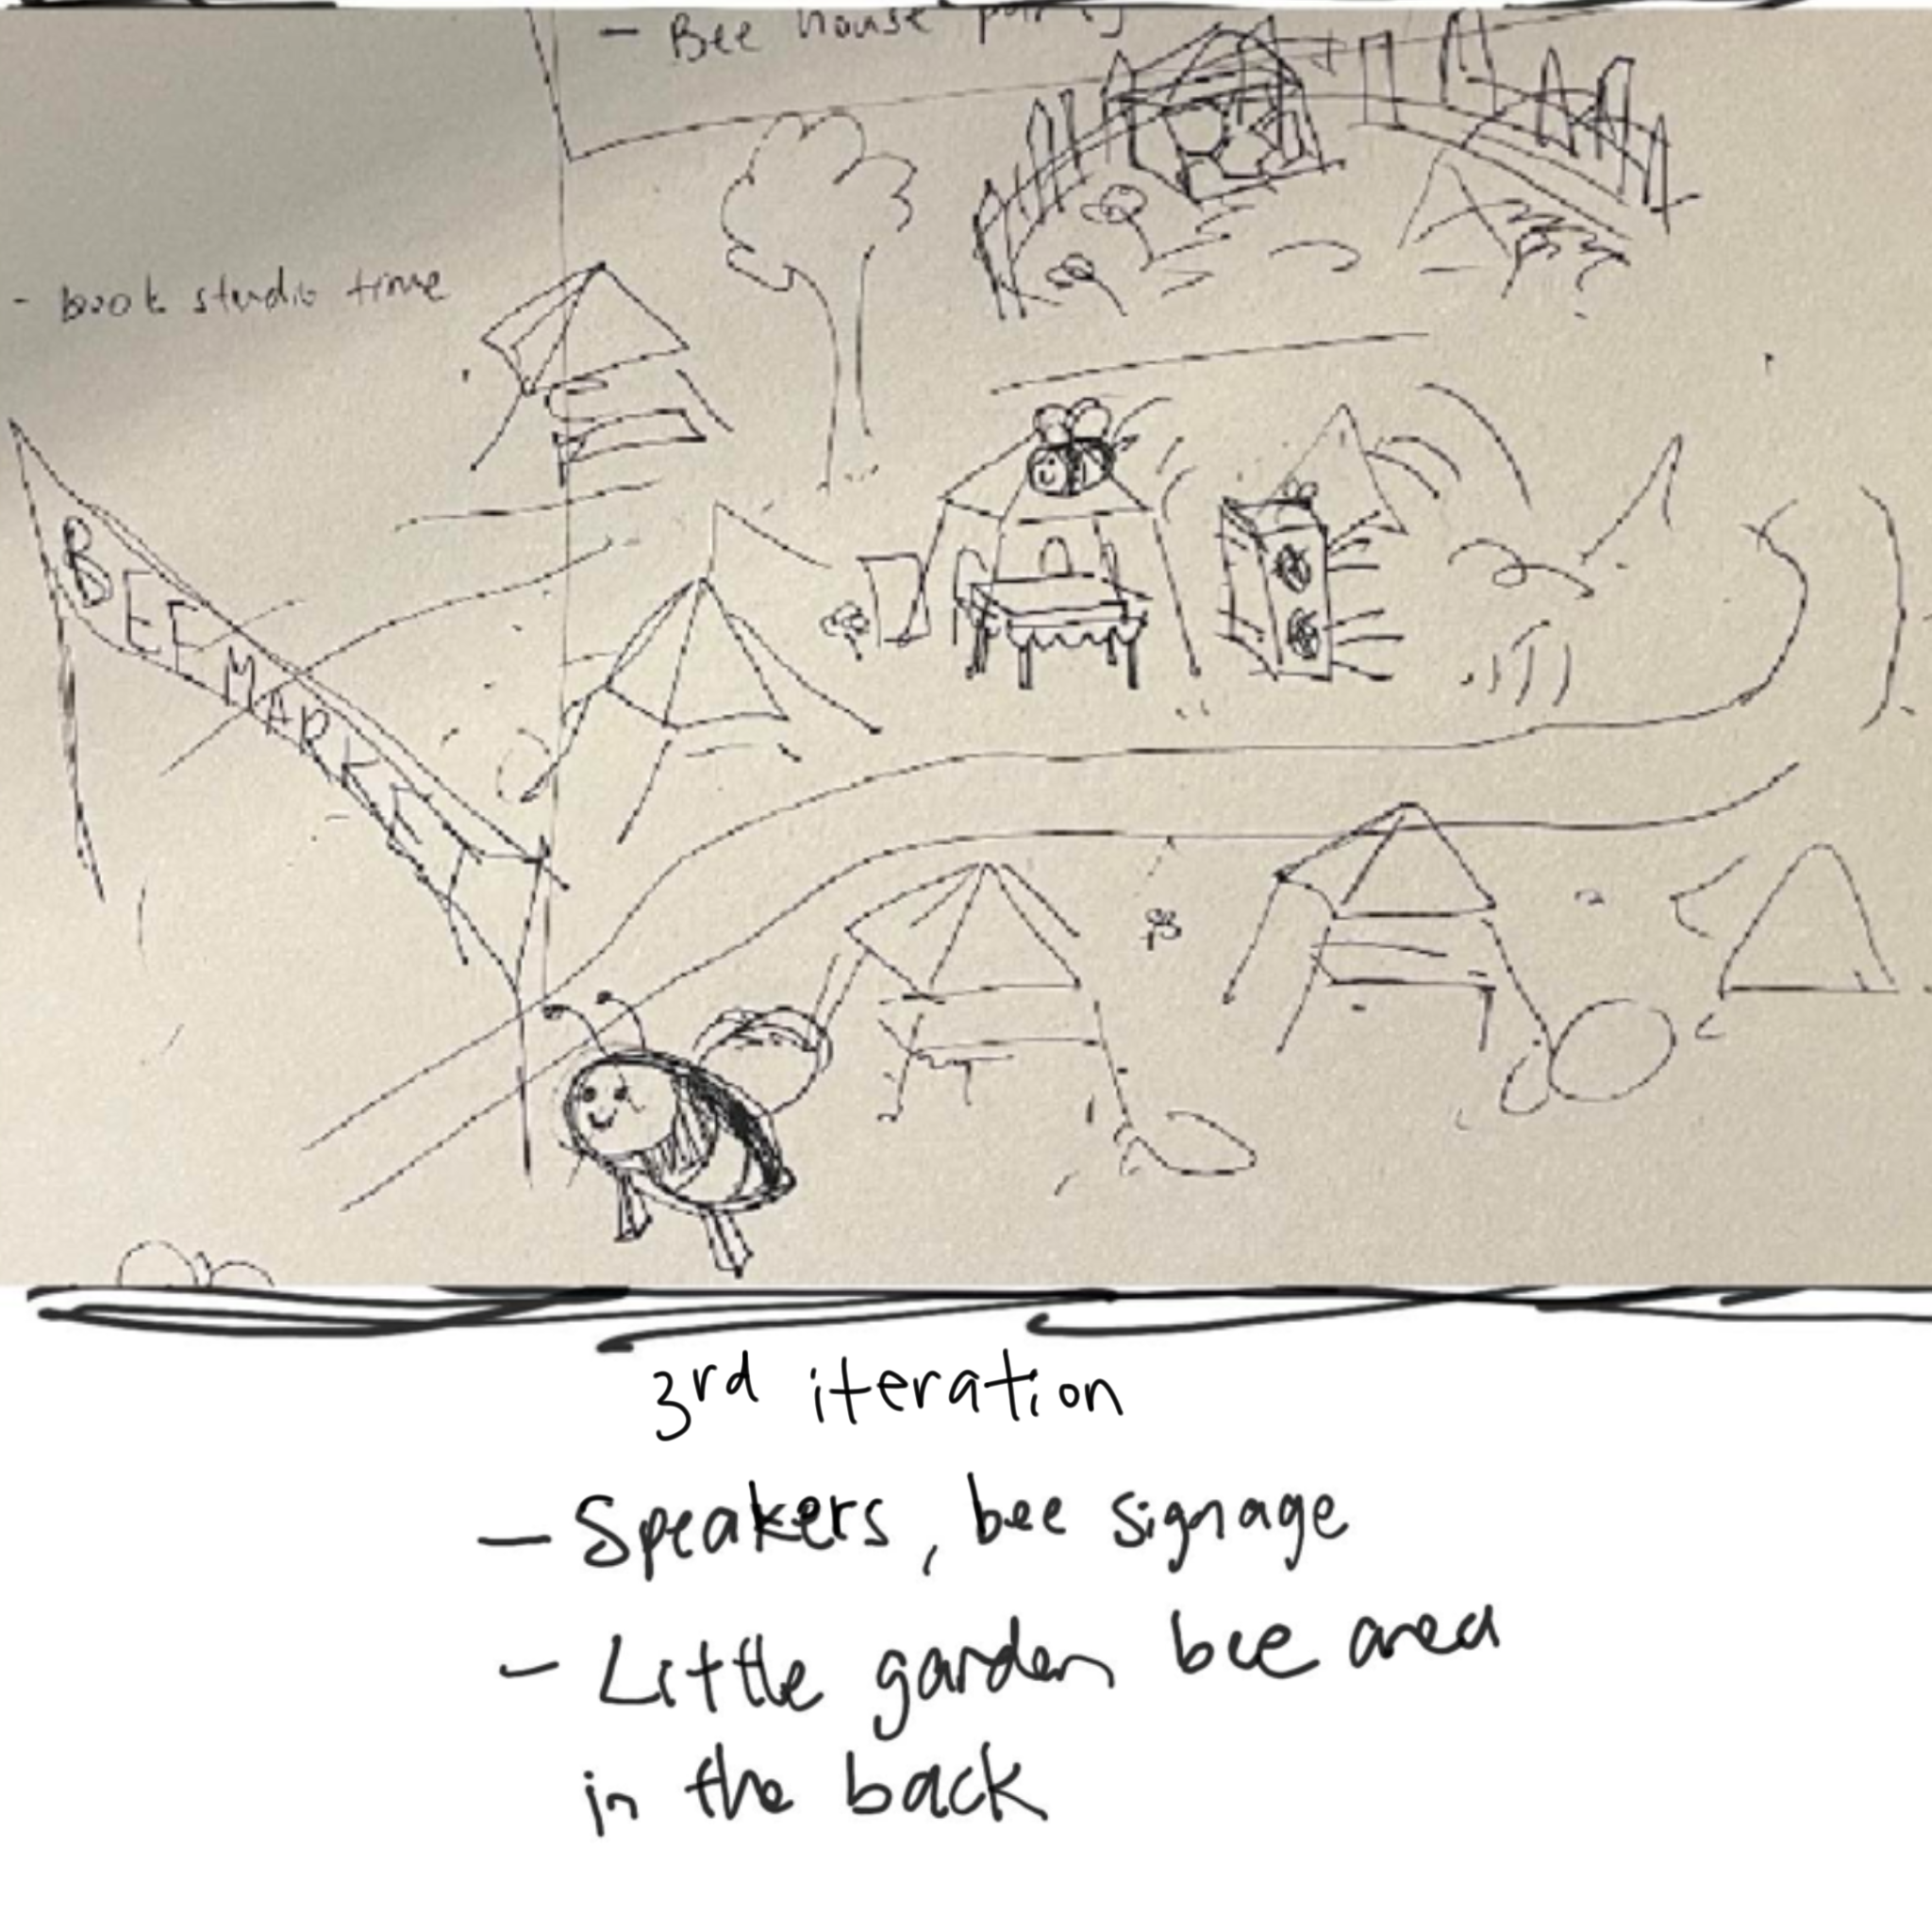 - Bee house
- book studio time
BEE MARKET
3rd iteration
- Speakers, bee signage
- Little garden bee area
in the back